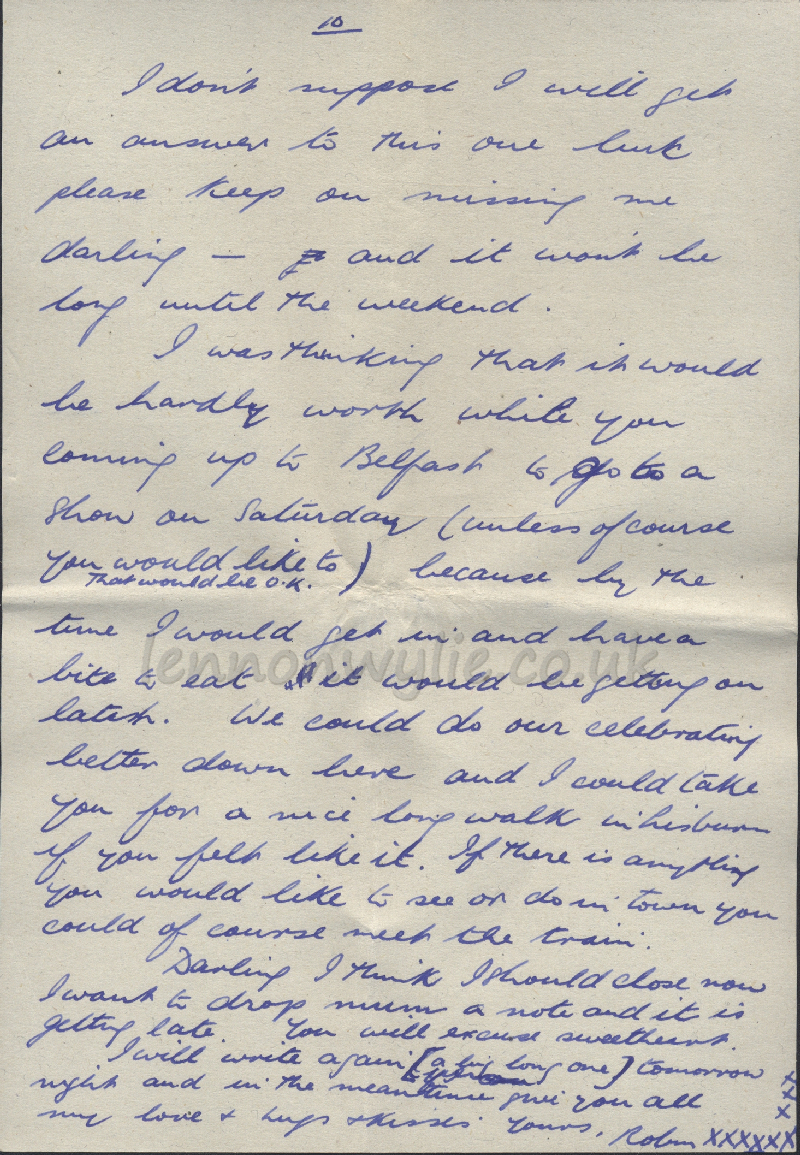 10
I don't suppose I will get
an answer to this one but
please keep on missing me
darling — and it won't be
long until the weekend.
I was thinking that it would
be hardly worth while you
coming up to Belfast to go to a
show on Saturday (unless of course
you would like to) because by the
That would be O.K.
time I would get in and have a
bite to eat it would be getting on
latish. We could do our celebrating
better down here and I could take
you for a nice long walk in Lisburn
if you felt like it. If there is anything
you would like to see or do in town you
could of course meet the train.
Darling I think I should close now
I want to drop mum a note and it is
getting late. You will excuse sweetheart.
I will write again (a big long one) tomorrow
night and in the meantime give you all
my love + hugs + kisses yours, Robin XXXXXX
X
X
X
lennonwylie.co.uk